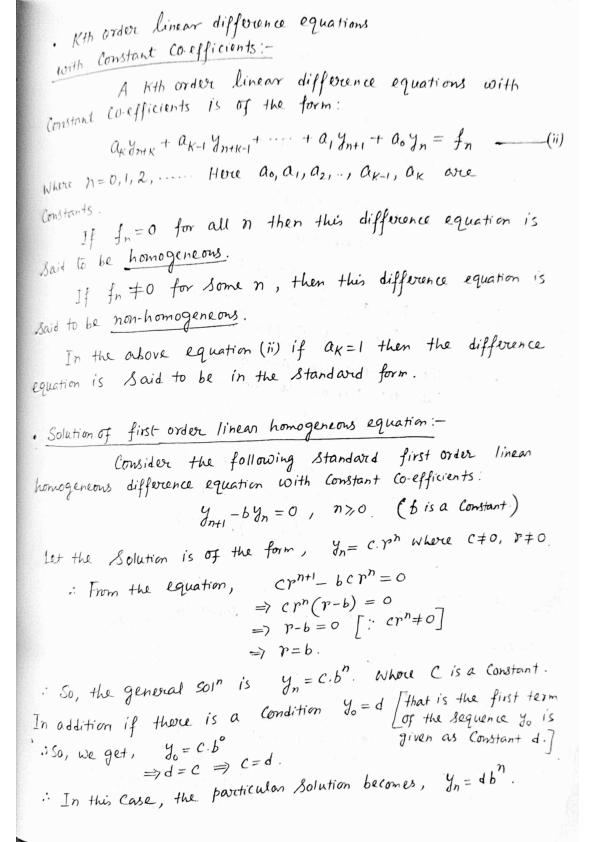 • Kth order linear difference equations
with Constant Co-efficients:-
A Kth order linear difference equations with
Constant Co-efficients is of the form:
aₖyₙ₊ₖ + aₖ₋₁ yₙ₊ₖ₋₁ + ..... + a₁ yₙ₊₁ + a₀ yₙ = fₙ ——(ii)
where n = 0, 1, 2, ...... Here a₀, a₁, a₂, .., aₖ₋₁, aₖ are
Constants.
If fₙ = 0 for all n then this difference equation is
said to be homogeneous.
If fₙ ≠ 0 for some n, then this difference equation is
said to be non-homogeneous.
In the above equation (ii) if aₖ = 1 then the difference
equation is said to be in the standard form.
• Solution of first order linear homogeneous equation:-
Consider the following standard first order linear
homogeneous difference equation with Constant Co-efficients:
yₙ₊₁ - byₙ = 0, n ≥ 0. (b is a Constant)
Let the Solution is of the form, yₙ = c.rⁿ where c ≠ 0, r ≠ 0.
∴ From the equation, crⁿ⁺¹ - bcrⁿ = 0
⇒ crⁿ(r-b) = 0
⇒ r-b = 0 [∵ crⁿ ≠ 0]
⇒ r = b.
∴ So, the general solⁿ is yₙ = c.bⁿ. where C is a Constant.
In addition if there is a Condition y₀ = d [that is the first term
of the sequence y₀ is
given as Constant d.]
∴ So, we get, y₀ = c.b⁰
⇒ d = c ⇒ c = d.
∴ In this Case, the particular Solution becomes, yₙ = dbⁿ.